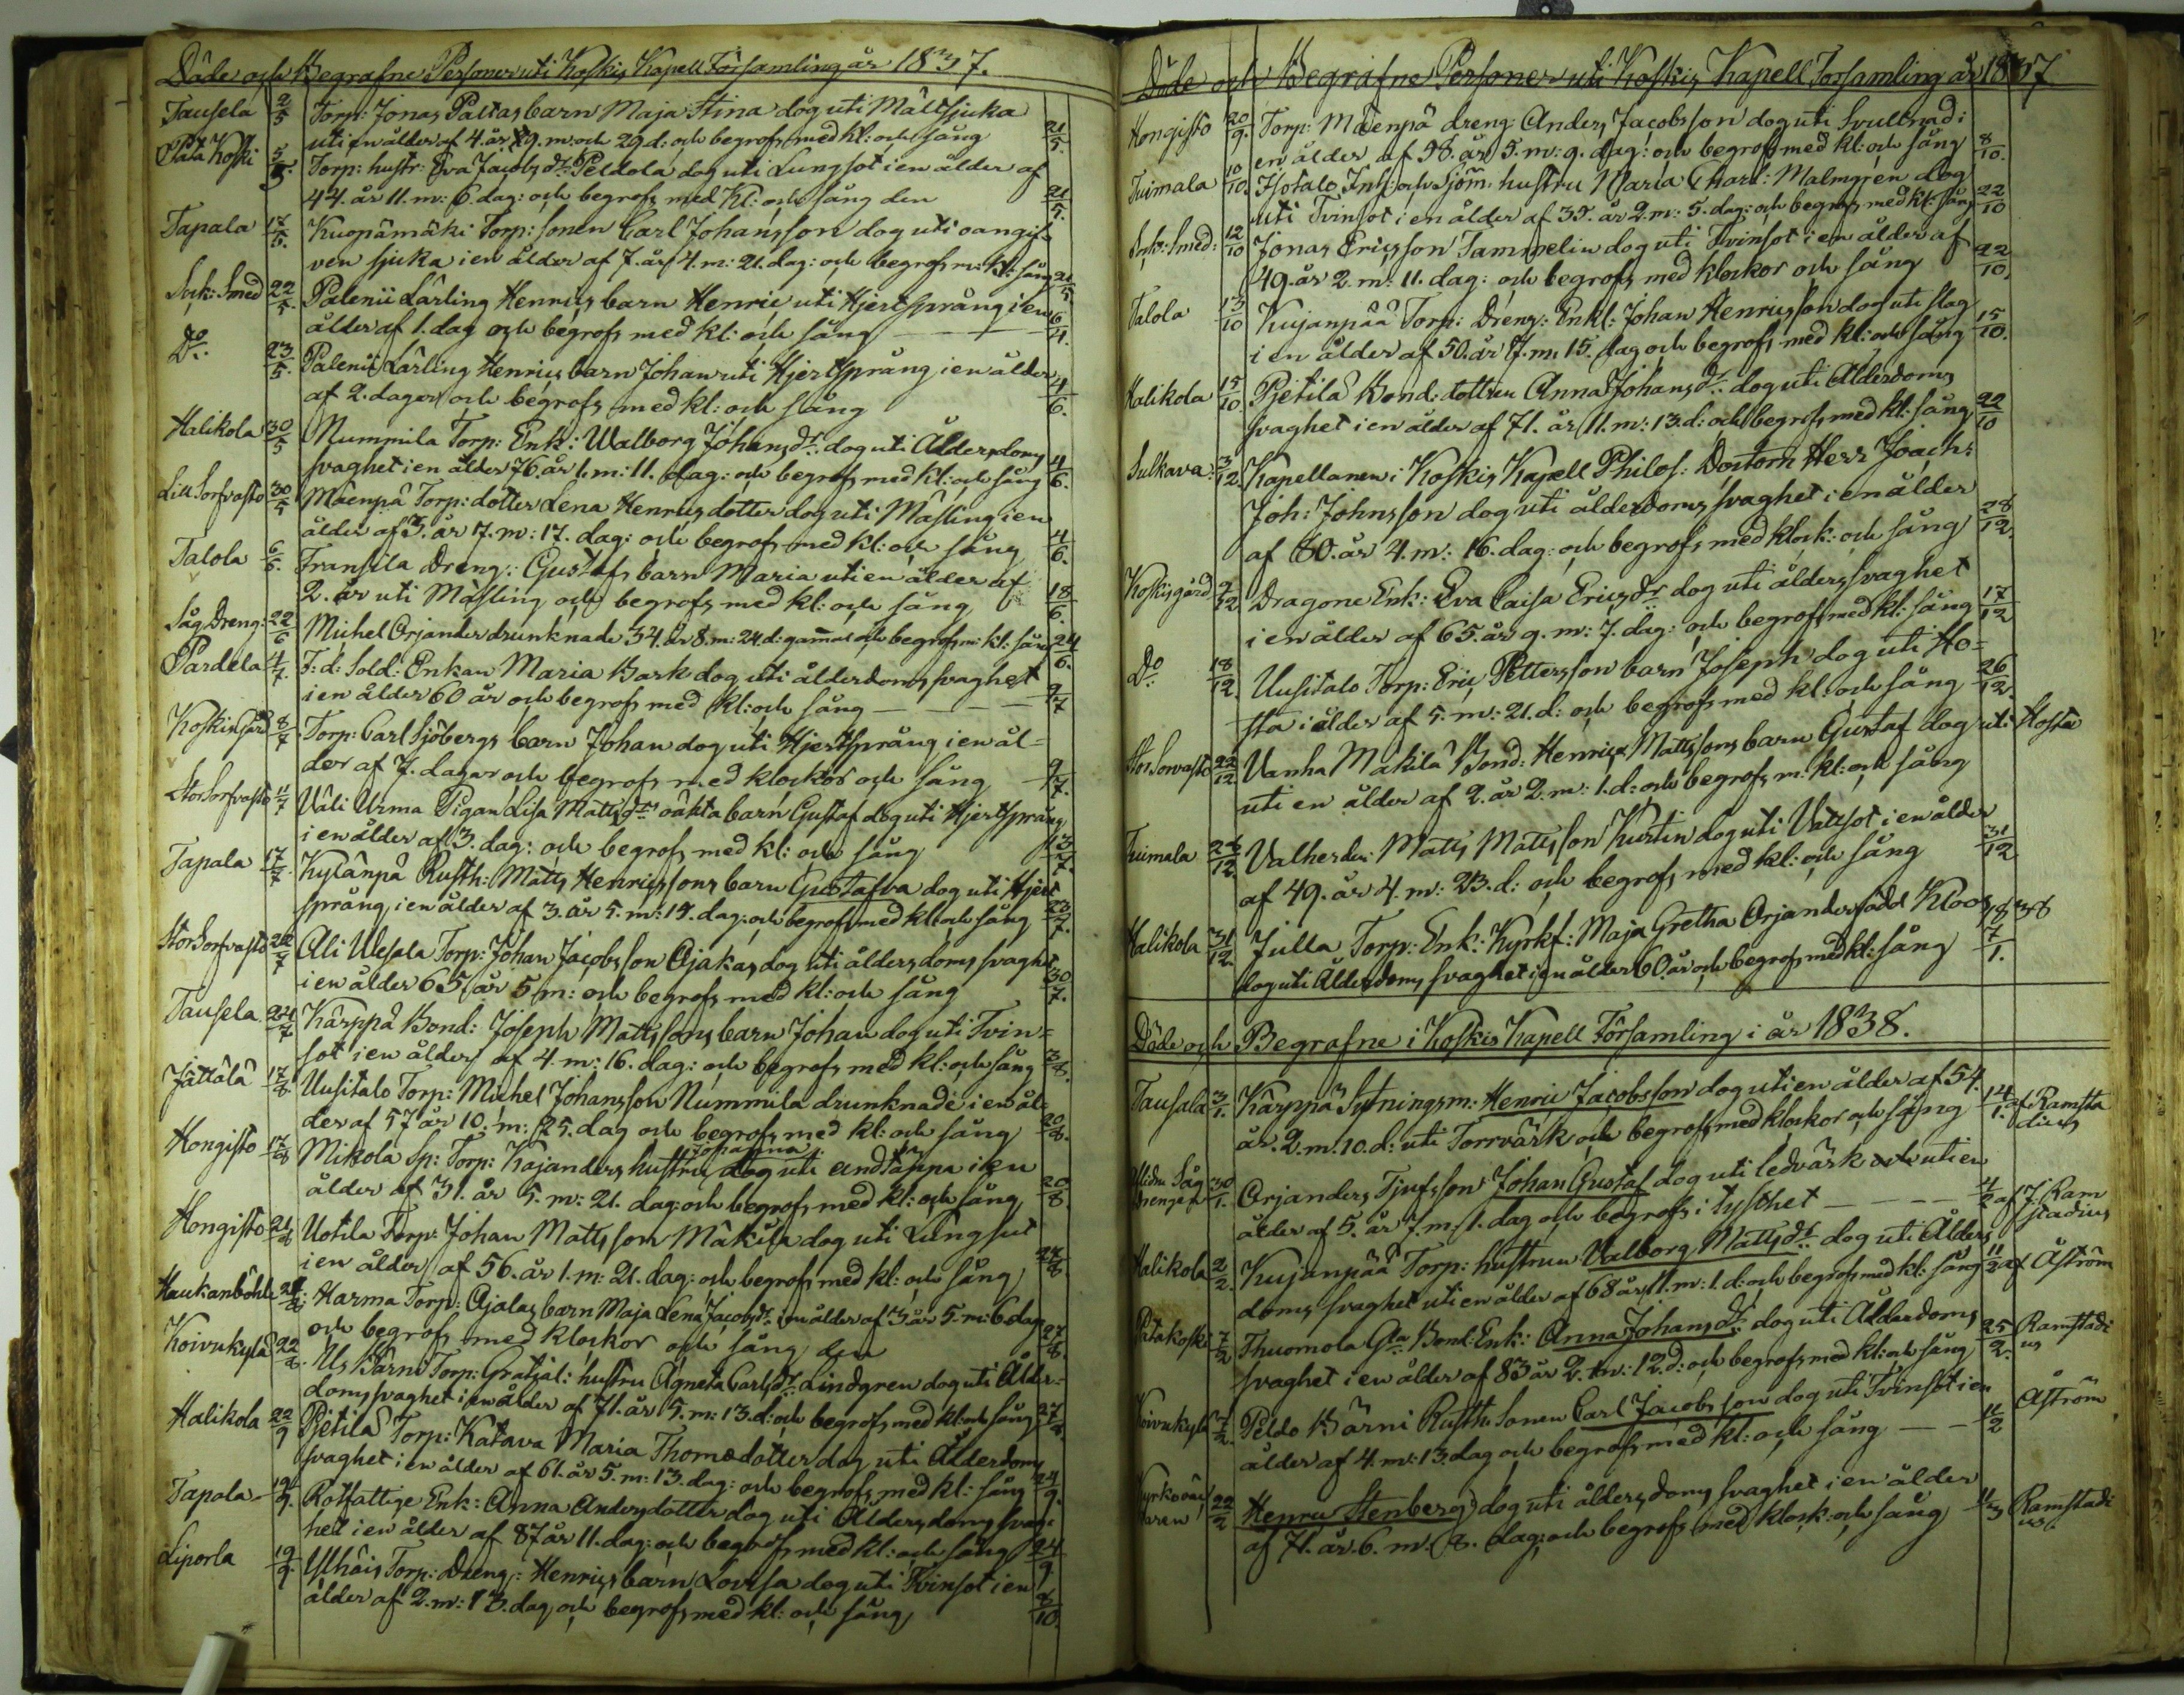 Döde och Begrafne Personer uti Koskis Kapell Församling år 1837.
Tausela 2/5 Torp: Jonas Paltas barn Maja Stina dog uti Mältsjuka
uti en ålder af 4. år 9. m: och 29 d: och begrofs med kl: och sång 21/5.
Pata Koski 5/5. Torp: hustr: Eva Jacobs dr: Peldola dog uti Lungsot i en ålder af
44. år 11. m: 6. dag: och begrofs med kl: och sång den 21/5.
Tapala 17/5. Kuopämäki Torp: sonen Carl Johansson dog uti oangif-
ven sjuka i en ålder af 7. år 4. m: 21. dag: och begrofs m: kl: sång 21/5
Sock: Smed 22/5. Palenii Lärling Henrics barn Henric uti Hjertsprång i en
ålder af 1. dag och begrofs med kl: och sång
Do: 23/5. Palenii Lärling Henrics barn Johan uti Hjertsprång i en ålder
af 2. dagar och begrofs med kl: och sång 4/6.
Halikola 30/5 Nummila Torp: Enk: Walborg Johans dr: dog uti Ålderdoms
svaghet i en ålder 76. år 1. m: 11. dag: och begrofs med kl: och sång 4/6.
Lill Sorfvasto 30/5 Mäenpä Torp: dotter Lena Henrics dotter dog uti Mäsling i en
ålder af 3. år 7. m: 17. dag: och begrofs med kl: och sång 4/6.
Talola 6/6. Fransila Dreng: Gustafs barn Maria uti en ålder af
2. år uti Mäsling och begrofs med kl: och sång 18/6.
Såg Dreng: 22/6 Michel Orjander drunknade 34. år 8. m: 24. d: gammal och begrofs m: kl: sång 24/6.
Pardela 4/7. F: d: Sold: Enkan Maria Bark dog uti ålderdoms svaghet
i en ålder 60 år och begrofs med kl: och sång 9/7
Koskis gård 8/7 Torp: Carl Sjöbergs barn Johan dog uti Hjertsprång i en ål=
der af 7. dagar och begrofs med klockor och sång 9/7.
Stor Sorfvasto 11/7 Väli Urma Pigan Lisa Matts dtrs oäkta barn Gustaf dog uti Hjertsprång
i en ålder af 3. dag: och begrofs med kl: och sång 13/7.
Tapala 17/7. Kylänpä Rusth: Matts Henricssons barn Gustafva dog uti Hjert
språng i en ålder af 3. år 5. m: 14. dag: och begrofs med kl: och sång 23/7.
Stor Sorfvasto 26/7 Ali Uesala Torp: Johan Jacobsson Ajakas dog uti ålders doms svaghet
i en ålder 65. år 5 m: och begrofs med kl: och sång 30/7.
Tausela 24/7 Kärppä Bond: Joseph Mattssons barn Johan dog uti Tvin=
sot i en ålder af 4. m: 16. dag: och begrofs med kl: och sång 3/8.
Jättälä 17/8 Uusitalo Torp: Michel Johansson Nummila drunknade i en ål=
der af 57 år 10. m: 25. dag och begrofs med kl: och sång 20/8.
Hongisto 17/8 Mikola Sp: Torp: Kajanders hustru Johanna dog uti andtäppa i en
ålder af 31. år 5. m: 21. dag: och begrofs med kl: och sång 20/8.
Hongisto 21/8 Uotila Torp: Johan Mattsson Mäkilä dog uti Lungsot
i en ålder af 56. år 1. m: 21. dag: och begrofs med kl: och sång 27/8.
Haukanböhle Harma Torp: Ajalas barn Maja Lena Jacobs dr: i en ålder af 3 år 5. m: 6 dag
och begrofs med klockor och sång den 27/8.
Koivukylä 22/8. Us Bärni Torp: Gratial: hustru Agneta Carls dr: Lindgren dog uti Ålder=
doms svaghet i en ålder af 71. år 5. m: 13. d: och begrofs med kl: och sång
Halikola 22/9 Pjetilä Torp: Katava Maria Thomedotter dog uti Ålderdoms
svaghet i en ålder af 61. år 5. m: 13. dag: och begrofs med kl: sång 24/9.
Tapala 19/9. Rotfattige Enk: Anna Andersdotter dog uti Ålders doms svag-
het i en ålder af 87 år 11. dag: och begrofs med kl: och sång 24/9
Liporla 19/9. Ylhäis Torp: Dreng: Henrics barn Lovisa dog uti Tvinsot i en
ålder af 2. m: 13. dag och begrofs med kl: och sång 8/10.
Döde och Begrafne Personer uti Koskis Kapell Församling år 1837
Hongisto 20/9. Torp: Mäenpä dreng Anders Jacobsson dog uti Svullnad i
en ålder af 58. år 5. m: 9. dag: och begrofs med kl: och sång 8/10.
Tuimala 10/10. Isotalo Inh: och Sjöm: hustru Maria Charl: Malmgren dog
uti Tvinsot i en ålder af 35. år 2. m: 5. dag: och begrofs med kl: sång 22/10
Sock: Smed: 12/10 Jonas Ericsson Tammelin dog uti Tvinsot i en ålder af
49. år 2. m: 11. dag: och begrofs med klockor och sång 22/10.
Talola 13/10 Kujanpää Torp: Dreng: Enkl: Johan Henricsson dog uti slag
i en ålder af 50. år 7. m: 15. dag och begrofs med kl: och sång 15/10.
Halikola 15/10 Pjetilä Bond: dottren Anna Johans dr: dog uti Ålderdoms
svaghet i en ålder af 71. år 11. m: 13. d: och begrofs med kl: sång 22/10
Sulkava: 3/12. Kapellanen i Koskis Kapell Philos: Doctorn Herr Joach:
Joh: Johnsson dog uti ålderdoms svaghet i en ålder
af 80. år 4. m: 16. dag: och begrofs med klock: och sång 28/12.
Koskis gård 9/12 Dragone Enk: Eva Caisa Erics dr: dog uti ålders svaghet
i en ålder af 65. år 9. m: 7. dag: och begrofs med kl: sång 17/12
Do: 18/12. Uusitalo Torp: Eric Pettersson barn Joseph dog uti Ho=
sta i ålder af 5. m: 21. d: och begrofs med kl: och sång 26/12.
Stor Sorvasto 22/12 Vanha Mäkilä Bond: Henrics Mattssons barn Gustaf dog uti Hosta
uti en ålder af 2. år 2. m: 1. d: och begrofs m: kl: och sång
Tuimala 26/12. Valherden: Matts Mattsson Kustin dog uti Vattsot i en ålder
af 49. år 4. m: 23. d: och begrofs med kl: och sång 31/12
Halikola 31/12. Julla Torp: Enk: Kyrkf: Maja Gretha Orjander född Kloos 1838
dog uti Ålderdoms svaghet i en ålder 60. år och begrofs med kl: sång 7/1.
Döde och Begrafne i Koskis Kapell Församling i år 1838.
Tausala 3/1. Kärppä Sytningsm: Henric Jacobsson dog uti en ålder af 54.
år. 2. m. 10. d: uti Torrvärk och begrofs med klockor och sång 14/1. af Ramsta
dius
Såg drengen 30/1. Orjanders Tjufsson Johan Gustaf dog uti ledvärk uti en
ålder af 5. år 7. m: 1. dag och begrofs i tysthet 4/2 af J: Ram
stadius
Halikola 2/2. Kujanpää Torp: hustrun Valborg Matts dr: dog uti Ålder
doms svaghet uti en ålder af 68 år 11. m: 1. d: och begrofs med kl: sång 11/2 af Åström
Patakoski 7/2 Thuomola Gla Bond: Enk: Anna Johans dr: dog uti Ålderdoms
svaghet i en ålder af 83 år 2. m: 12. d: och begrofs med kl: och sång 25/2. Ramstadi
us
Koivukylä 7/2. Peldo Bärni Rusth: Sonen Carl Jacobsson dog uti Tvinsot i en
ålder af 4. m: 13. dag och begrofs med kl: och sång 11/2 Åström
Kyrkovac
taren 22/2 Henric Stenberg dog uti ålders doms svaghet i en ålder
af 71. år. 6. m. 8. dag: och begrofs med klock: och sång 11/3 Ramstadi
us.